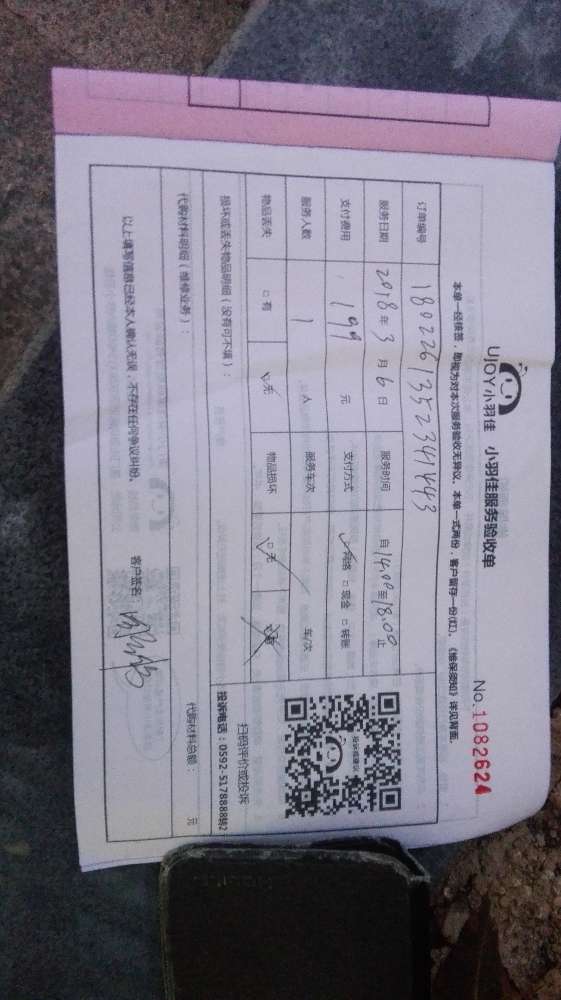 UJOY小羽佳 小羽佳服务验收单
No.1082624
本单一经核签，即视为对本次服务验收无异议，本单一式两份，客户留存一份(红)，《维保须知》详见背面。
订单编号 180226135234144 3
服务日期 2018年3月6日 服务时间 自14:00至18:00止
支付费用 199元 支付方式 ☑网络 □现金 □转账
服务人数 1人 服务车次 车/次
物品丢失 □有 ☑无 物品损坏 □无
损坏或丢失物品明细（没有可不填）：
投诉或建议
扫码评价或投诉
投诉电话：0592-5178888转2
代购材料明细（维修业务）： 代购材料总额： 元
以上填写信息已经本人确认无误，不存在任何争议纠纷。 客户签名：